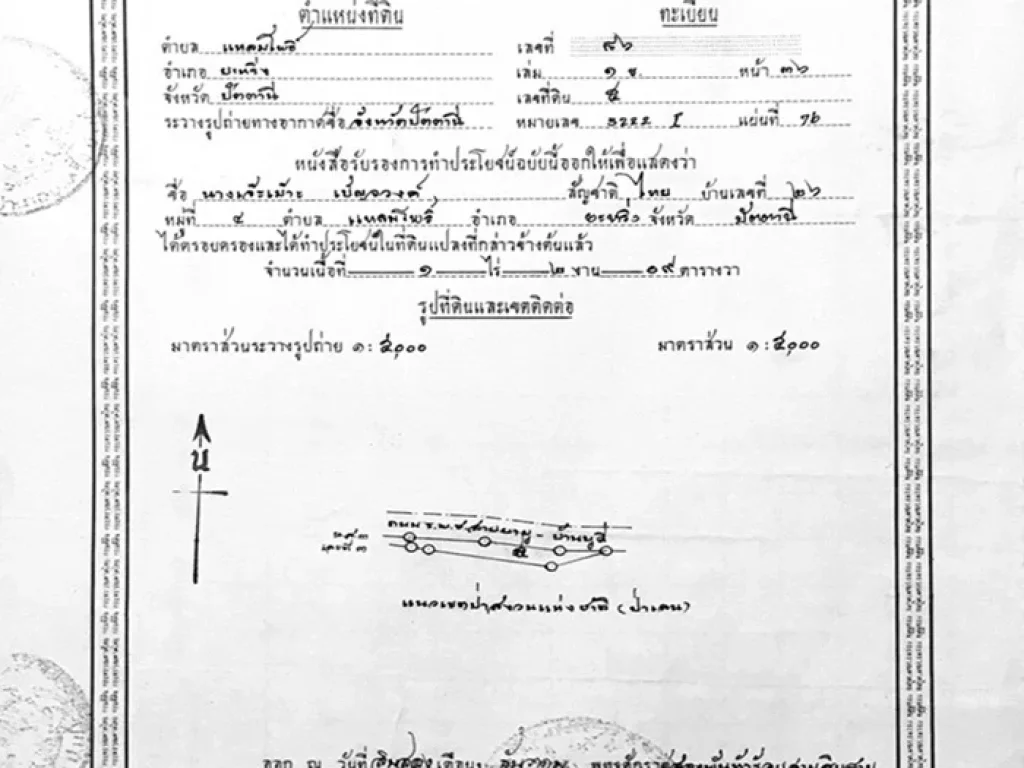 ตำแหน่งที่ดิน
ทะเบียน
ตำบล แหลมโพธิ์
เลขที่ ๙๖
อำเภอ ยะหริ่ง
เล่ม ๑ ข. หน้า ๓๖
จังหวัด ปัตตานี
เลขที่ดิน ๕
ระวางรูปถ่ายทางอากาศชื่อ จังหวัดปัตตานี
หมายเลข I แผ่นที่ 76
หนังสือรับรองการทำประโยชน์ฉบับนี้ออกให้เพื่อแสดงว่า
ชื่อ สัญชาติ ไทย บ้านเลขที่ ๒๖
หมู่ที่ ๔ ตำบล แหลมโพธิ์ อำเภอ ยะหริ่ง จังหวัด ปัตตานี
ได้ครอบครองและได้ทำประโยชน์ในที่ดินแปลงที่กล่าวข้างต้นแล้ว
จำนวนเนื้อที่ ๑ ไร่ ๒ งาน ๐๙ ตารางวา
รูปที่ดินและเขตติดต่อ
มาตราส่วนระวางรูปถ่าย ๑ : ๕,๐๐๐
มาตราส่วน ๑ : ๕,๐๐๐
น
ถนน ร.พ.ช. สายยามู - บ้านบูดี
๕
แนวเขตป่าสงวนแห่งชาติ (ป่าเลน)
ออก ณ วันที่ เดือน ธันวาคม